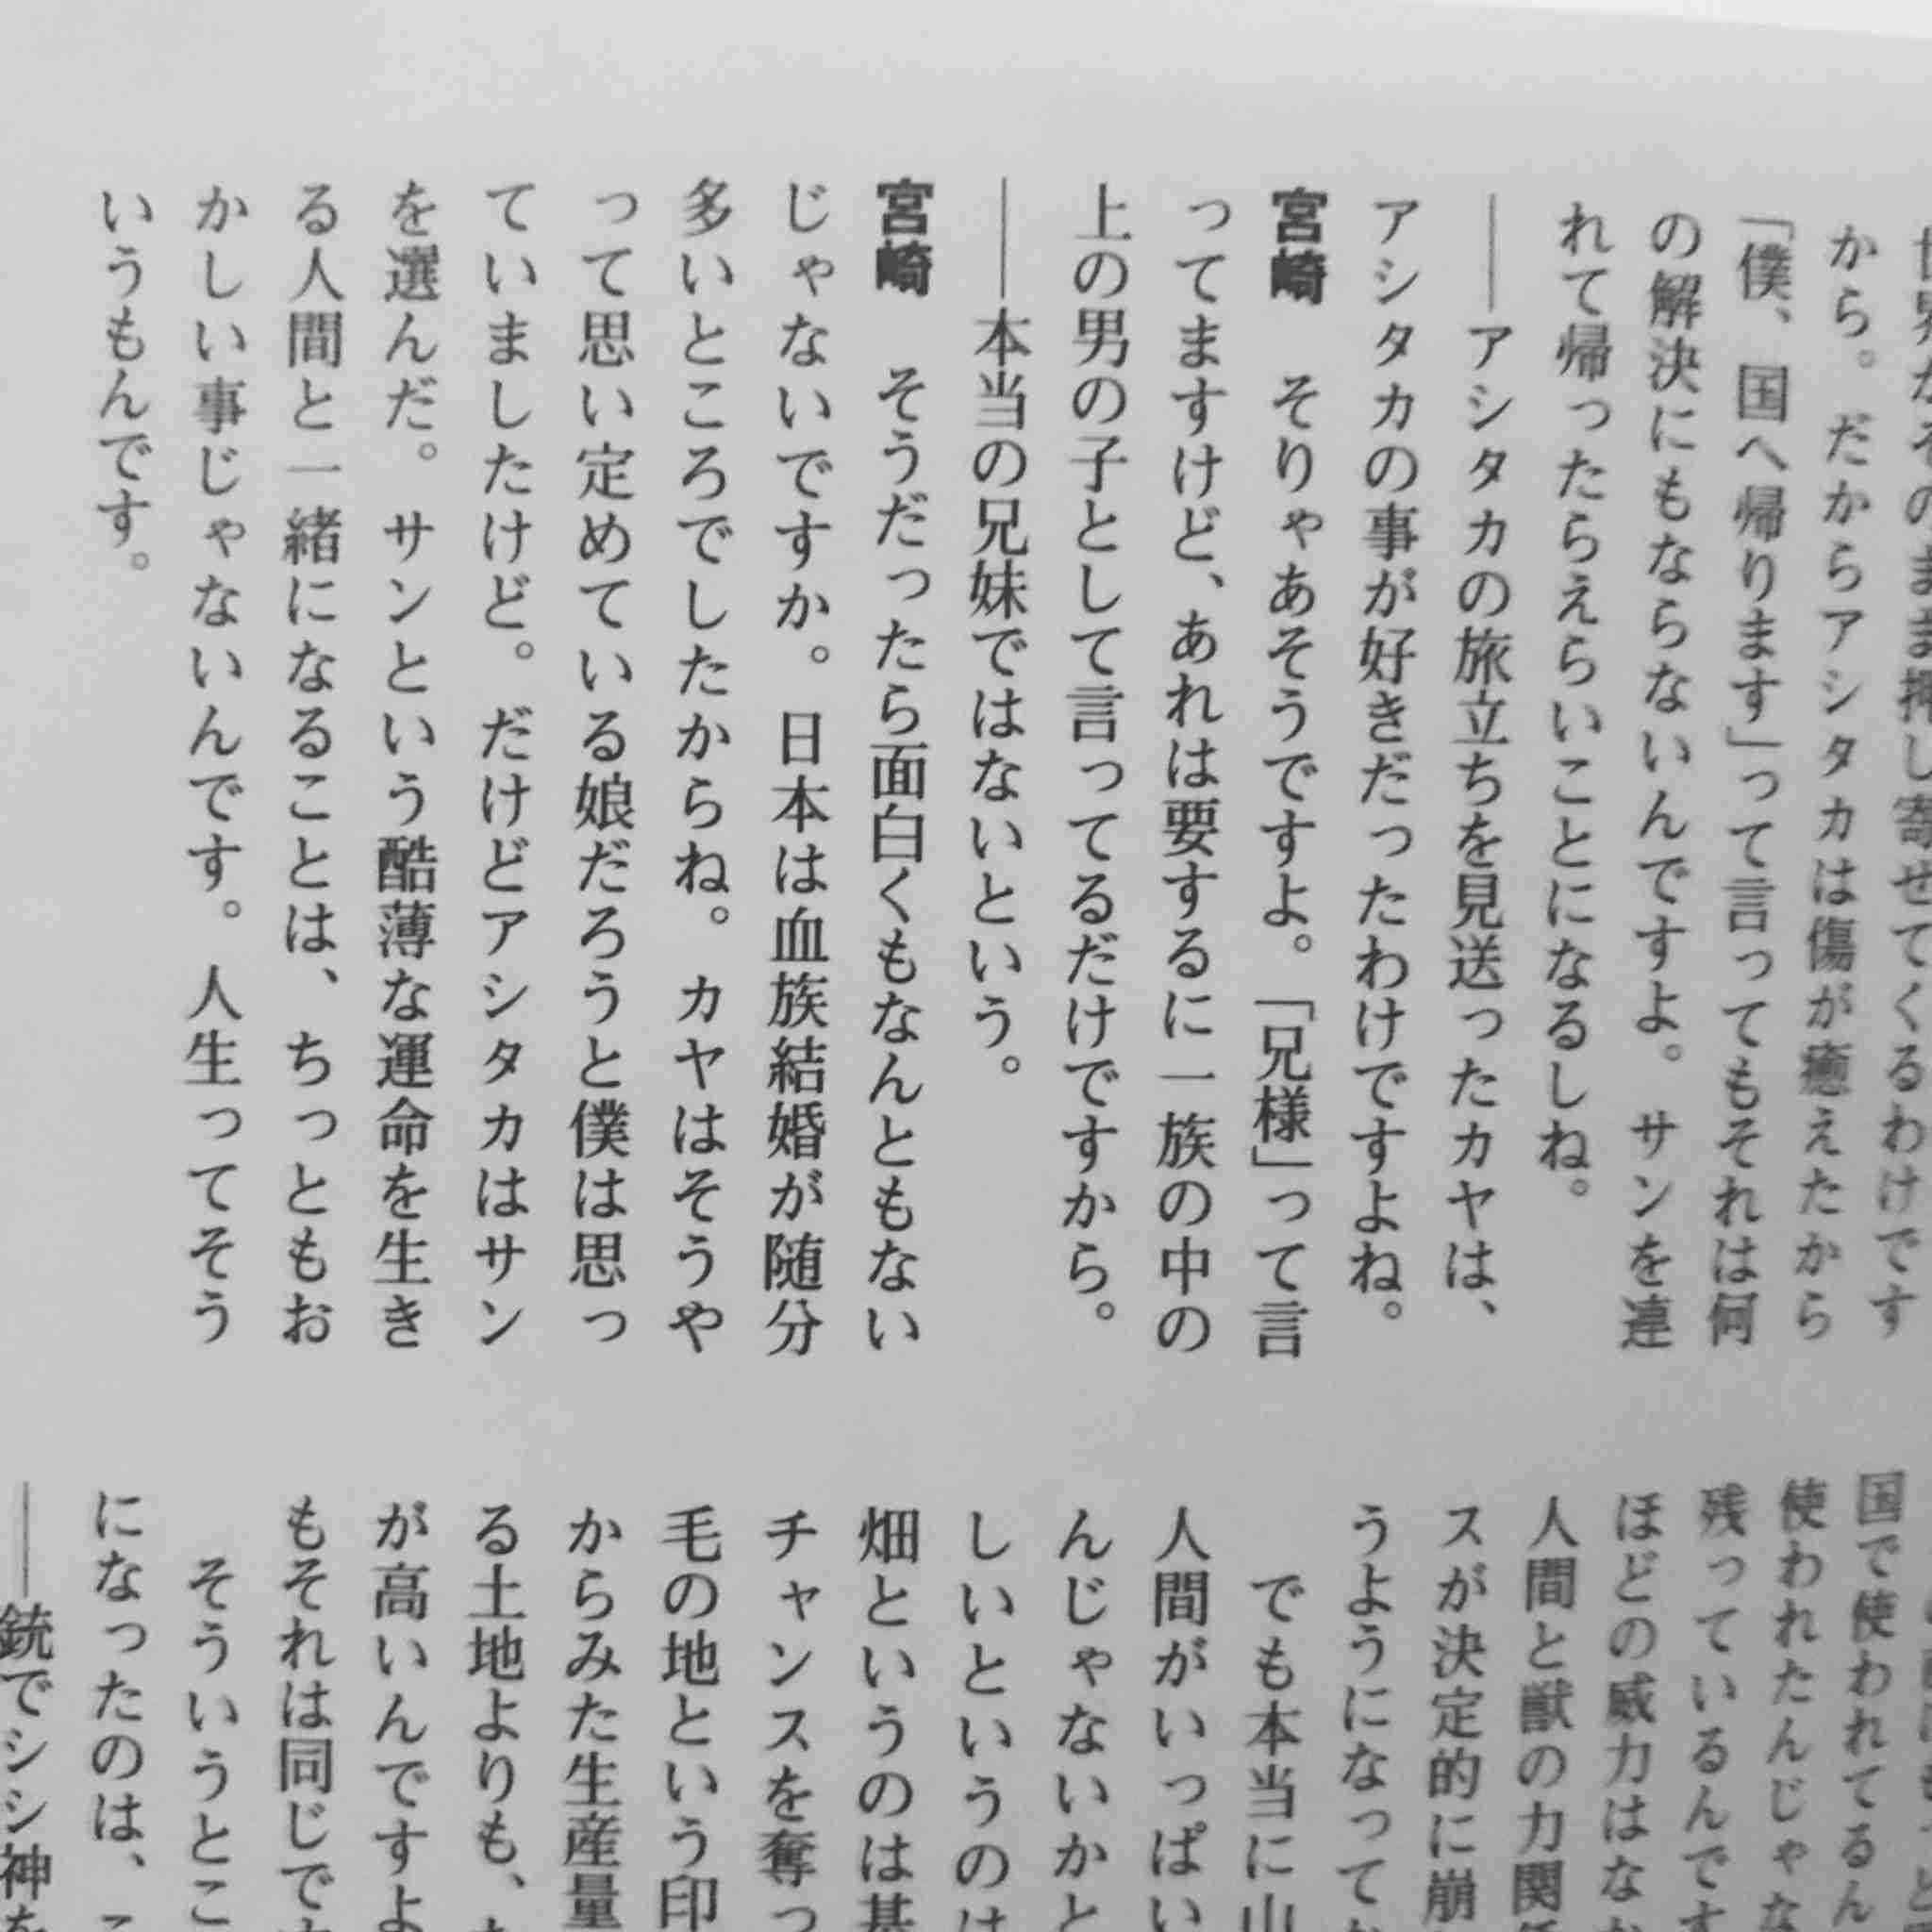 世界がそのまま押し寄せてくるわけです
から。だからアシタカは傷が癒えたから
「僕、国へ帰ります」って言ってもそれは何
の解決にもならないんですよ。サンを連
れて帰ったらえらいことになるしね。
――アシタカの旅立ちを見送ったカヤは、
アシタカの事が好きだったわけですよね。
宮崎　そりゃあそうですよ。「兄様」って言
ってますけど、あれは要するに一族の中の
上の男の子として言ってるだけですから。
――本当の兄妹ではないという。
宮崎　そうだったら面白くもなんともない
じゃないですか。日本は血族結婚が随分
多いところでしたからね。カヤはそうや
って思い定めている娘だろうと僕は思っ
ていましたけど。だけどアシタカはサン
を選んだ。サンという酷薄な運命を生き
る人間と一緒になることは、ちっともお
かしい事じゃないんです。人生ってそう
いうもんです。
国で使われてるん
使われたんじゃな
残っているんです
ほどの威力はな
人間と獣の力関
スが決定的に崩
うようになって
でも本当に山
人間がいっぱい
んじゃないかと
しいというのは
畑というのは甚
チャンスを奪っ
毛の地という印
からみた生産量
る土地よりも、
が高いんですよ
もそれは同じで
そういうとこ
になったのは、
――銃でシシ神を